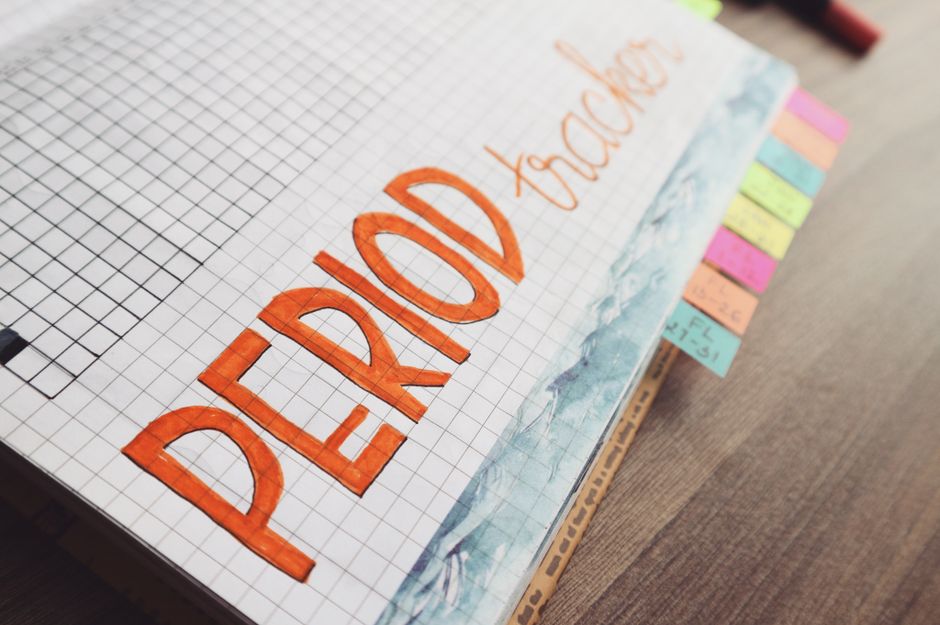 PERIOD
tracker
FL
13-26
FL
27-31